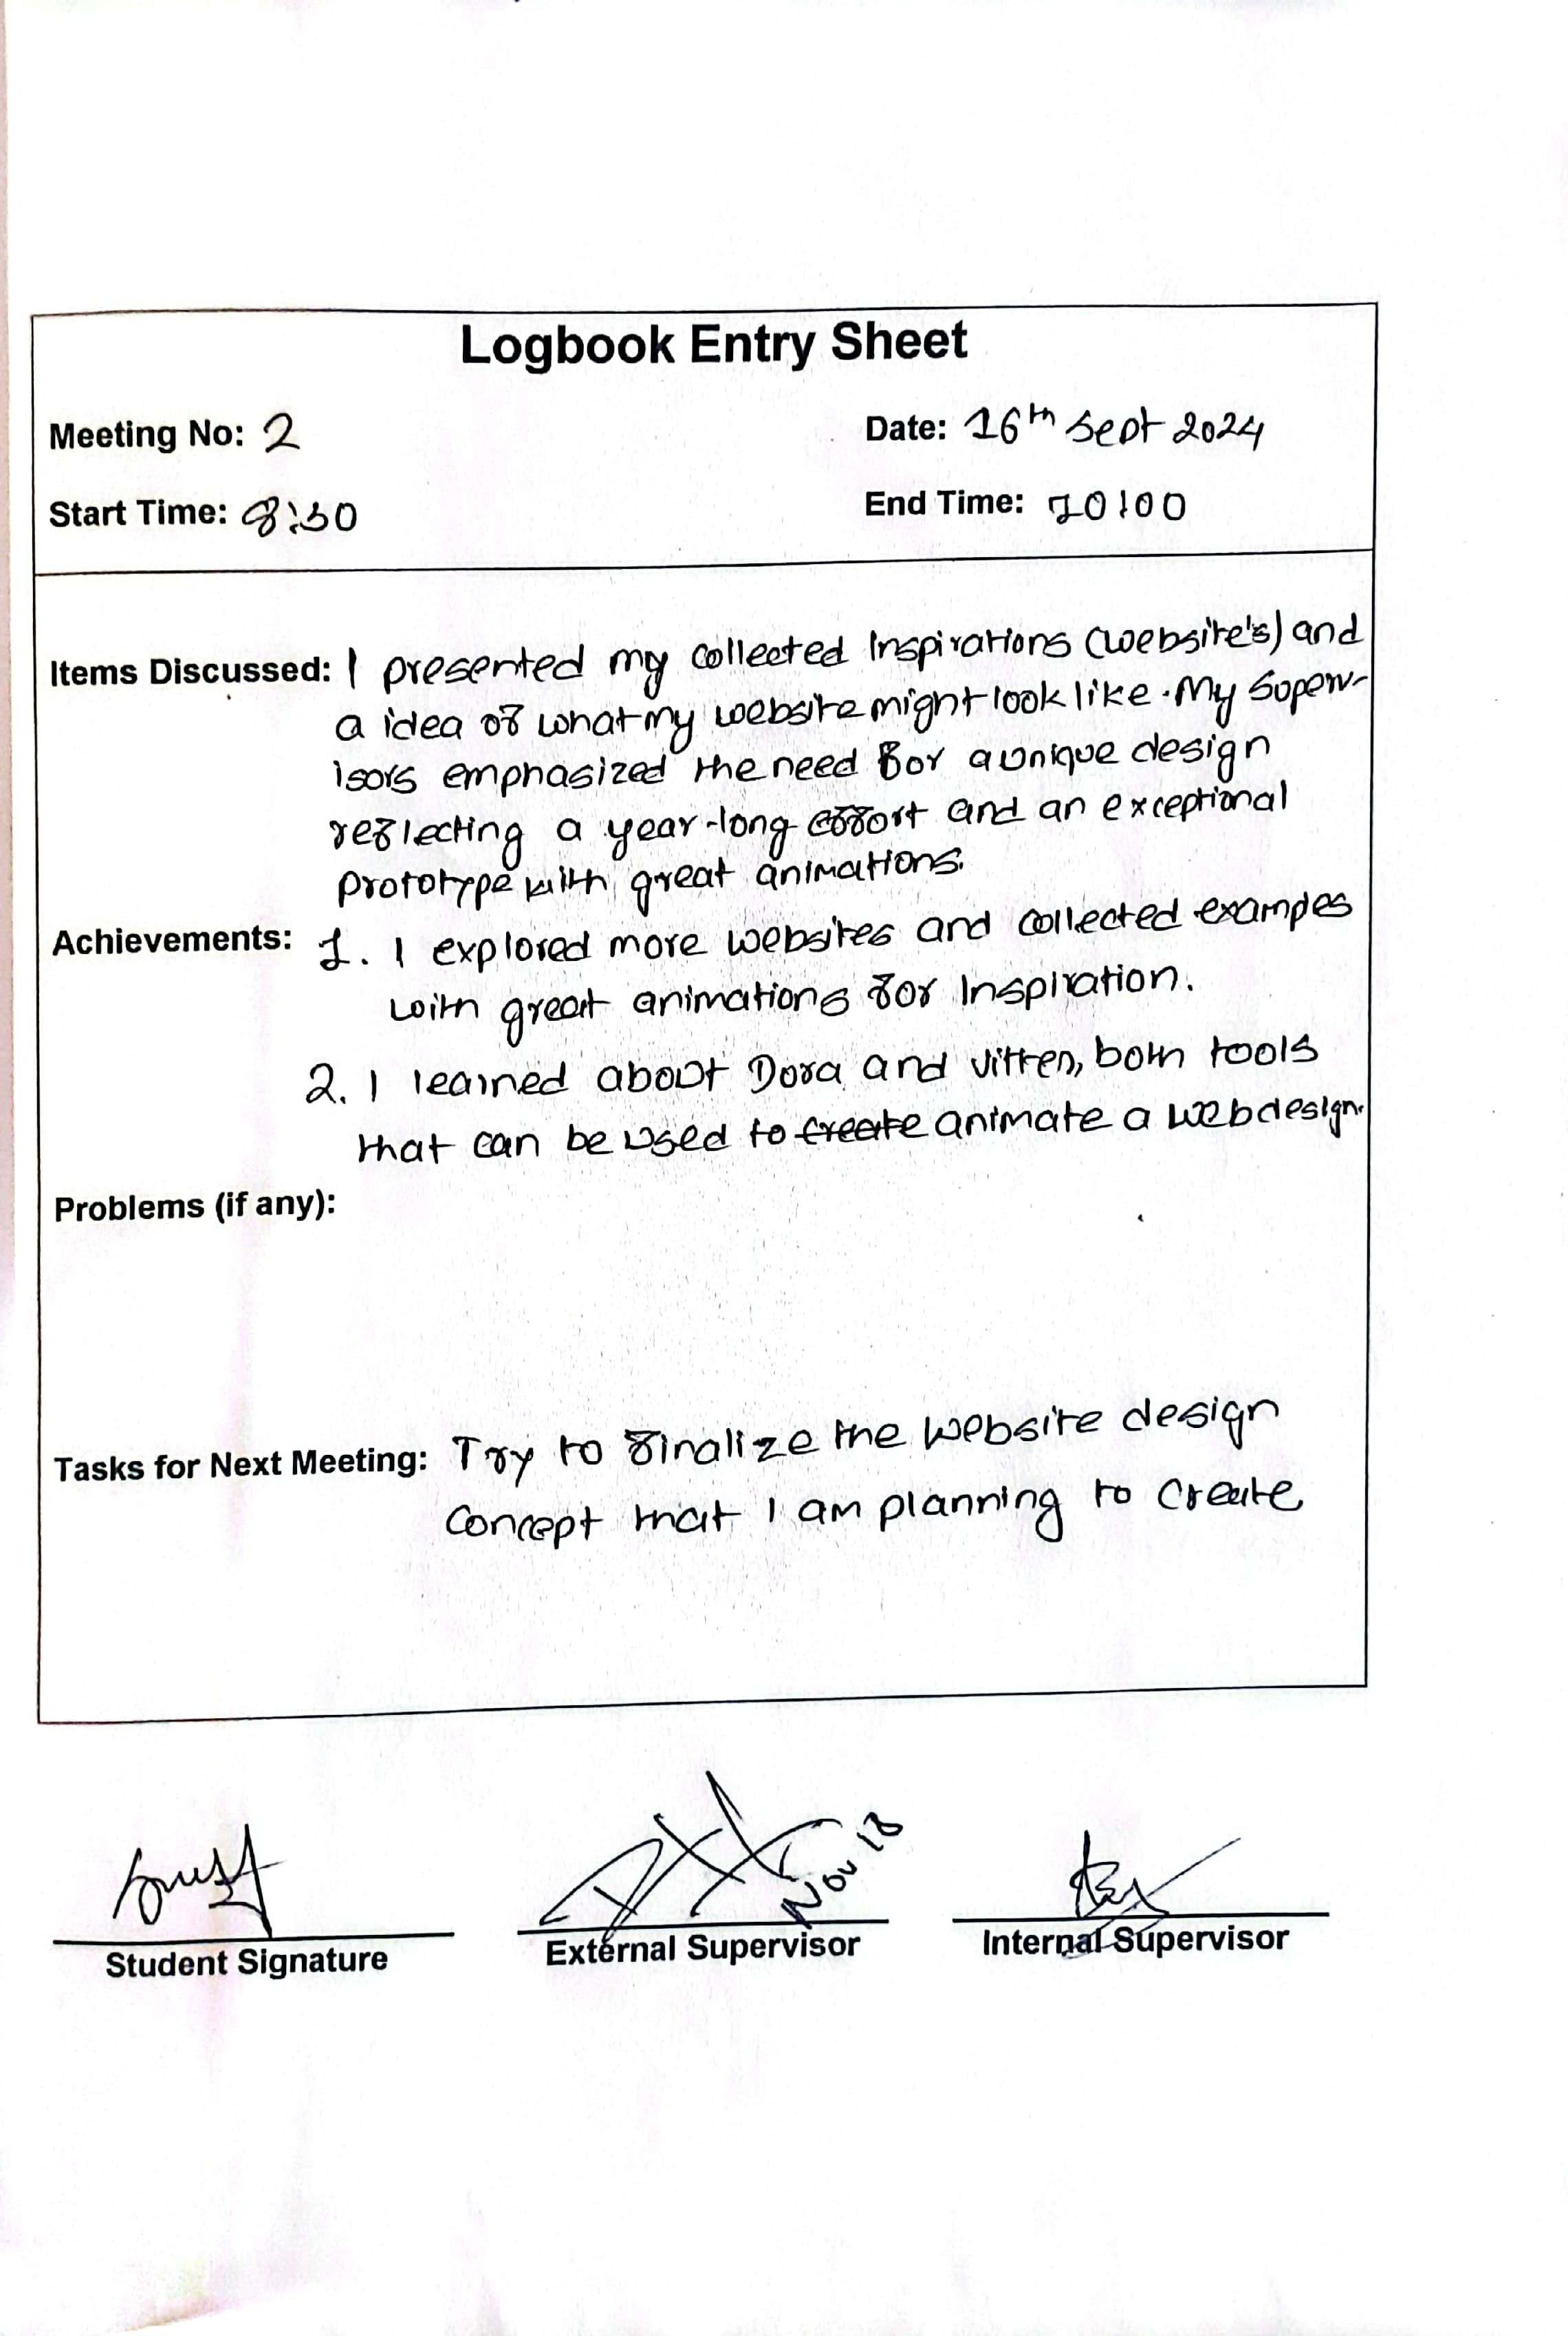 Logbook Entry Sheet
Meeting No: 2
Date: 16th Sept 2024
Start Time: 8:30
End Time: 10:00
Items Discussed: I presented my collected Inspirations (website's) and
a idea of what my website might look like. My Superv-
isors emphasized the need for a unique design
reflecting a year-long effort and an exceptional
prototype with great animations.
Achievements: 1. I explored more websites and collected exampes
with great animations for Inspiration.
2. I learned about Dora and vitten, both tools
that can be used to create animate a web design.
Problems (if any):
Tasks for Next Meeting: Try to finalize the website design
concept that I am planning to create
Nov 18
Student Signature
External Supervisor
Internal Supervisor